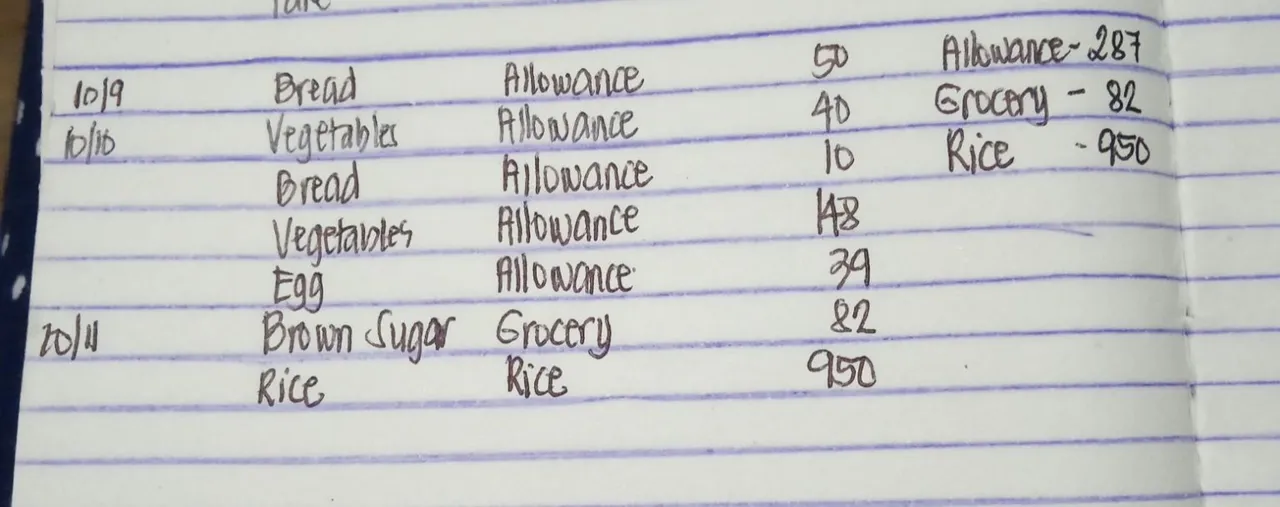 10/9 Bread Allowance 50 Allowance - 287
10/10 Vegetables Allowance 40 Grocery - 82
Bread Allowance 10 Rice - 950
Vegetables Allowance 148
Egg Allowance 39
10/11 Brown Sugar Grocery 82
Rice Rice 950